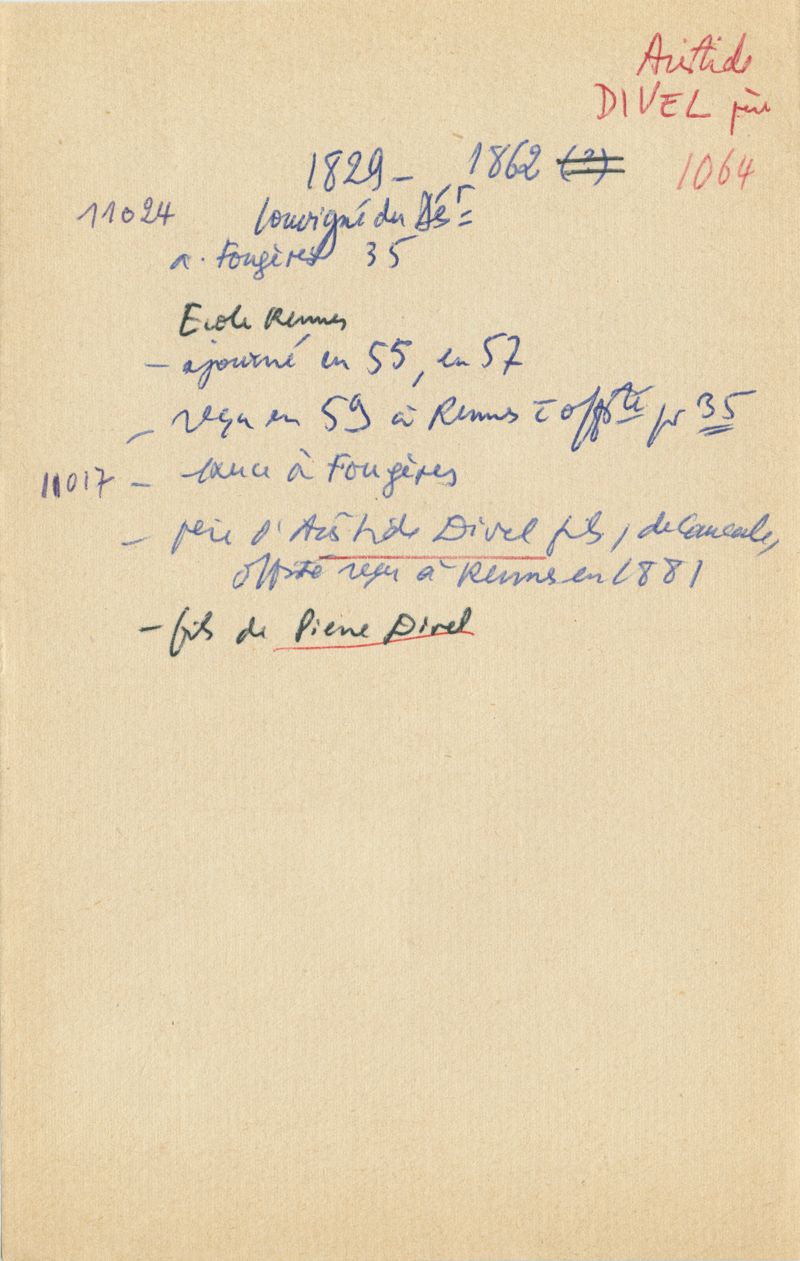 Aristide
DIVEL père
1829 - 1862 (?) 1064
11024 Louvigné du Désrt
a. Fougères 35
Ecole Rennes
- ajourné en 55, en 57
- reçu en 59 à Rennes offté pr 35
11017 - exerce à Fougères
- père d'Aristide Divel fils, de Cancale,
offsté reçu à Rennes en 1881
- fils de Pierre Divel